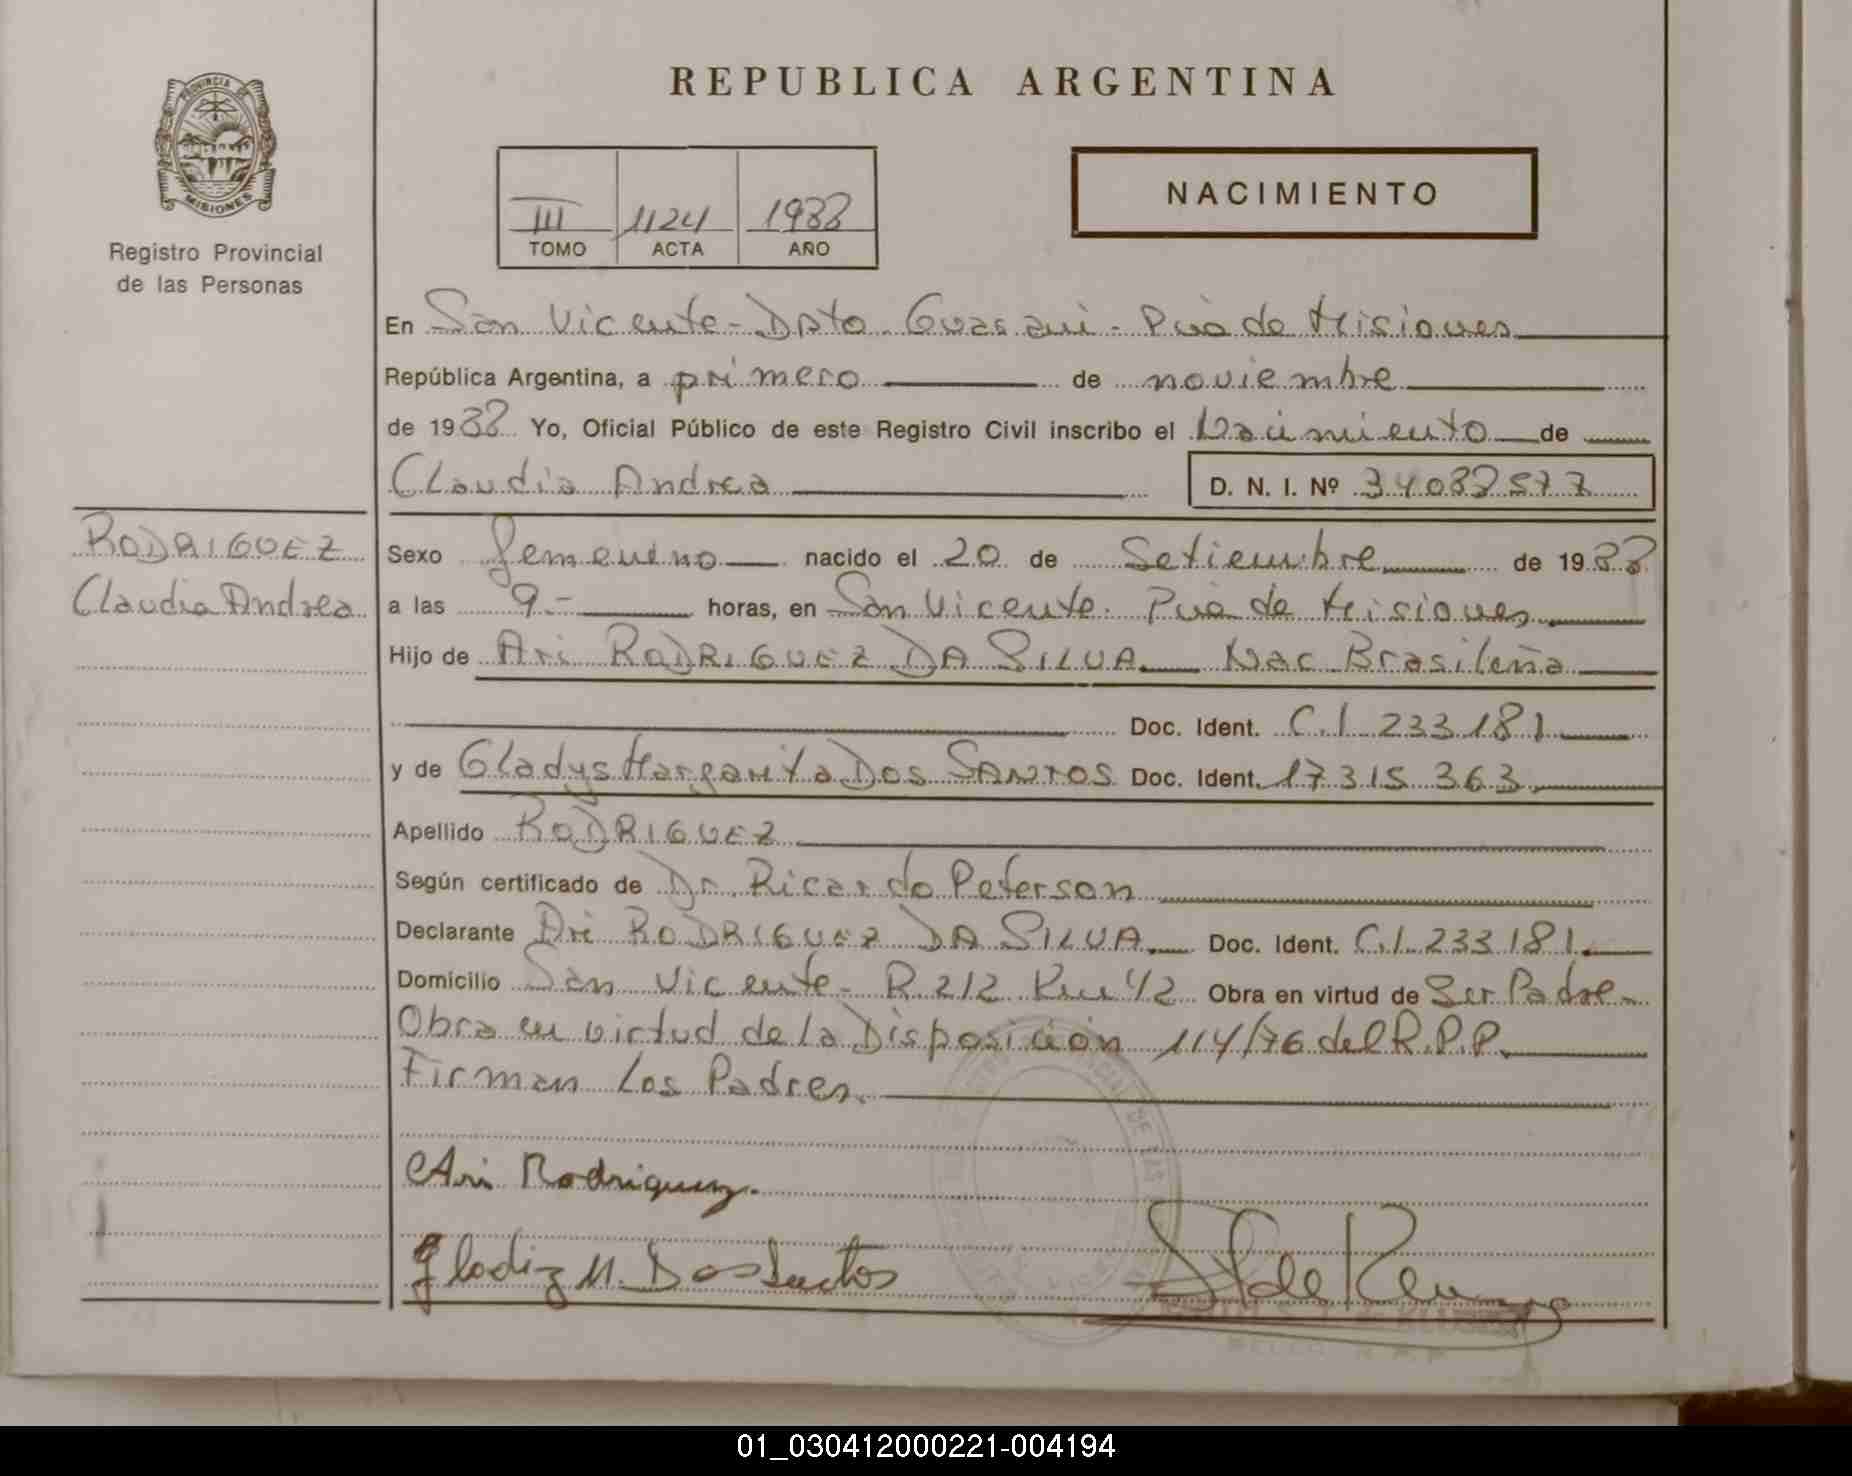 REPUBLICA ARGENTINA
PROVINCIA DE
MISIONES
Registro Provincial
de las Personas
III 1124 1988
TOMO ACTA AÑO
NACIMIENTO
En San Vicente - Dpto Guarani - Pcia de Misiones
República Argentina, a primero de noviembre
de 1988 Yo, Oficial Público de este Registro Civil inscribo el Nacimiento de
Claudia Andrea D. N. I. Nº 34088577
RODRIGUEZ
Claudia Andrea
Sexo femenino nacido el 20 de Setiembre de 1988
a las 9.- horas, en San Vicente. Pcia de Misiones
Hijo de Ari RODRIGUEZ DA SILVA Nac Brasileña
Doc. Ident. C.I. 233.181
y de Gladys Margarita DOS SANTOS Doc. Ident. 17.315.363
Apellido RODRIGUEZ
Según certificado de Dr. Ricardo Peterson
Declarante Ari RODRIGUEZ DA SILVA Doc. Ident. C.I. 233.181
Domicilio San Vicente - R 212 Km 42 Obra en virtud de Ser Padre
Obra en virtud de la Disposición 114/76 del R.P.P.
Firman Los Padres.
Ari Rodriguez.
Gladiz M. Dos Santos
01_030412000221-004194